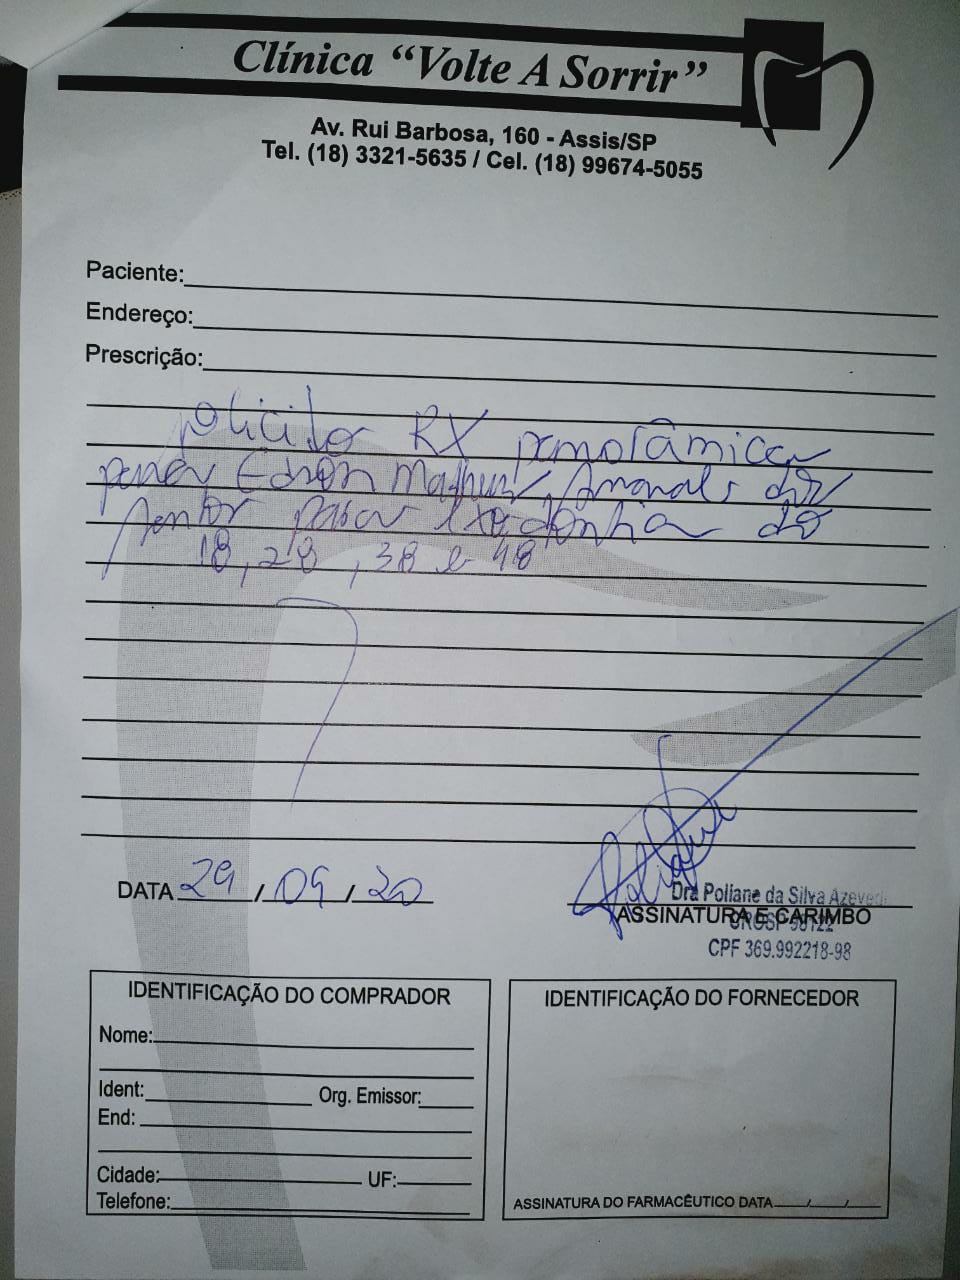 Clínica “Volte A Sorrir”
Av. Rui Barbosa, 160 - Assis/SP
Tel. (18) 3321-5635 / Cel. (18) 99674-5055
Paciente:
Endereço:
Prescrição:
solicito RX panorâmica
para Edson Matheus Amaral dos
Santos para exodontia do
18, 28, 38 e 48
DATA 29 / 09 / 20
Dra Poliane da Silva Azevedo
ASSINATURA E CARIMBO
CROSP
CPF 369.992218-98
IDENTIFICAÇÃO DO COMPRADOR
Nome:
Ident: Org. Emissor:
End:
Cidade: UF:
Telefone:
IDENTIFICAÇÃO DO FORNECEDOR
ASSINATURA DO FARMACÊUTICO DATA / /